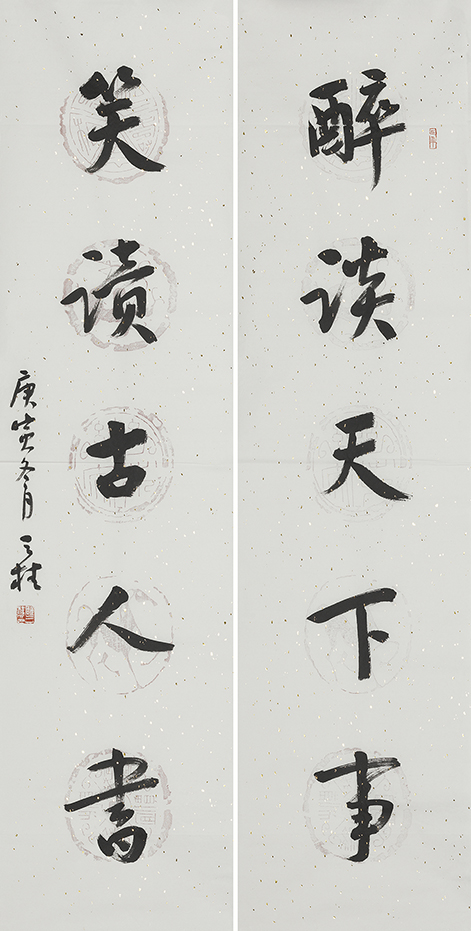 醉谈天下事
笑读古人书
庚寅冬月